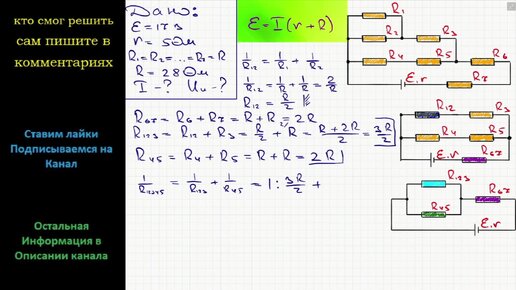 кто смог решить
сам пишите в
комментариях
Ставим лайки
Подписываемся на
Канал
Остальная
Информация в
Описании канала
Дано:
E = 17 В
r = 5 Ом
R₁ = R₂ = ... = R₇ = R
R = 28 Ом
I - ? Uᵤ - ?
E = I(r + R)
1/R₁₂ = 1/R₁ + 1/R₂
1/R₁₂ = 1/R + 1/R = 2/R
R₁₂ = R/2
R₆₇ = R₆ + R₇ = R + R = 2R
R₁₂₃ = R₁₂ + R₃ = R/2 + R = (R + 2R)/2 = 3R/2
R₄₅ = R₄ + R₅ = R + R = 2R
1/R₁₂₃₄₅ = 1/R₁₂₃ + 1/R₄₅ = 1 : 3R/2 +
R₁
R₂ R₃
R₄ R₅ R₆
E, r R₇
R₁₂ R₃
R₄ R₅
E, r R₆₇
R₁₂₃
R₆₇
R₄₅
E, r